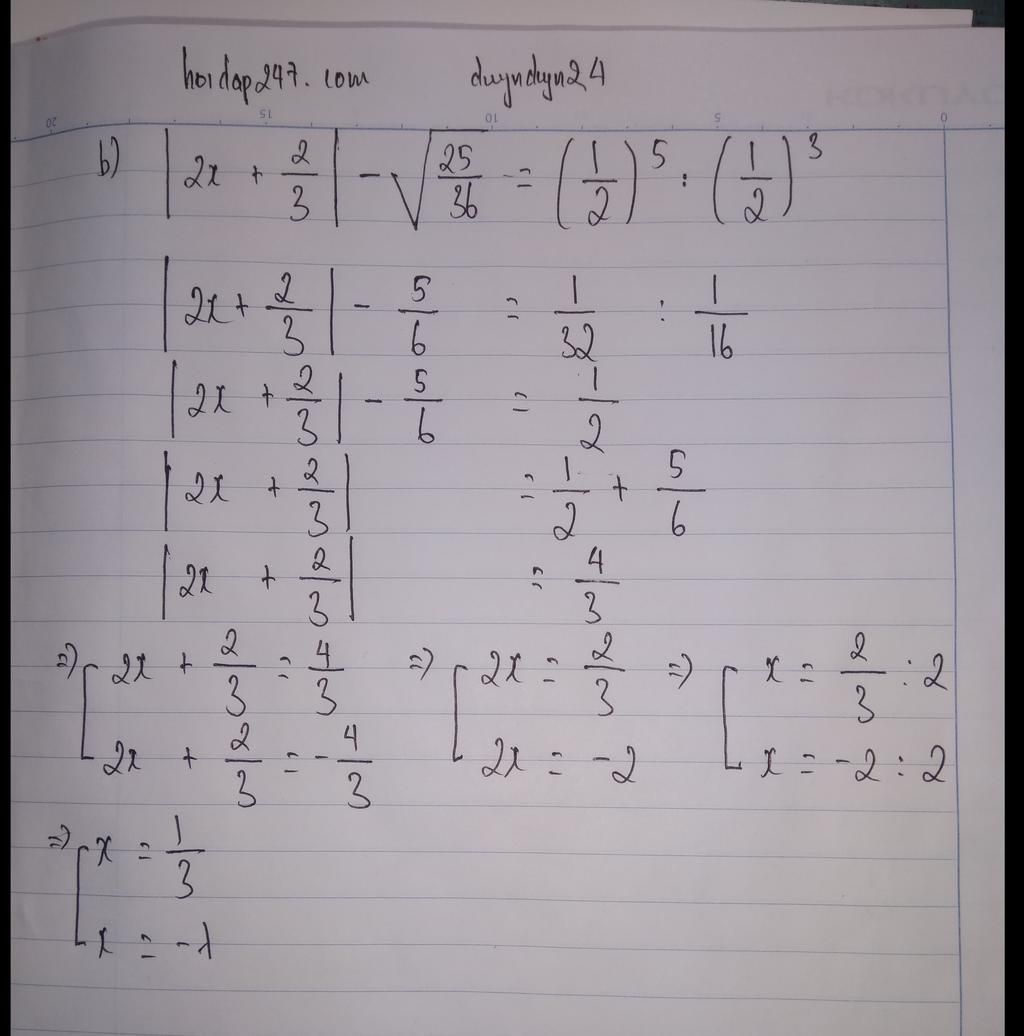 hoidap247.com duynduyn24
20 15 10 5 0
b) |2x + 2/3| - √(25/36) = (1/2)^5 : (1/2)^3
|2x + 2/3| - 5/6 = 1/32 : 1/16
|2x + 2/3| - 5/6 = 1/2
|2x + 2/3| = 1/2 + 5/6
|2x + 2/3| = 4/3
=> [ 2x + 2/3 = 4/3 => [ 2x = 2/3 => [ x = 2/3 : 2
2x + 2/3 = -4/3 2x = -2 x = -2 : 2
=> [ x = 1/3
x = -1